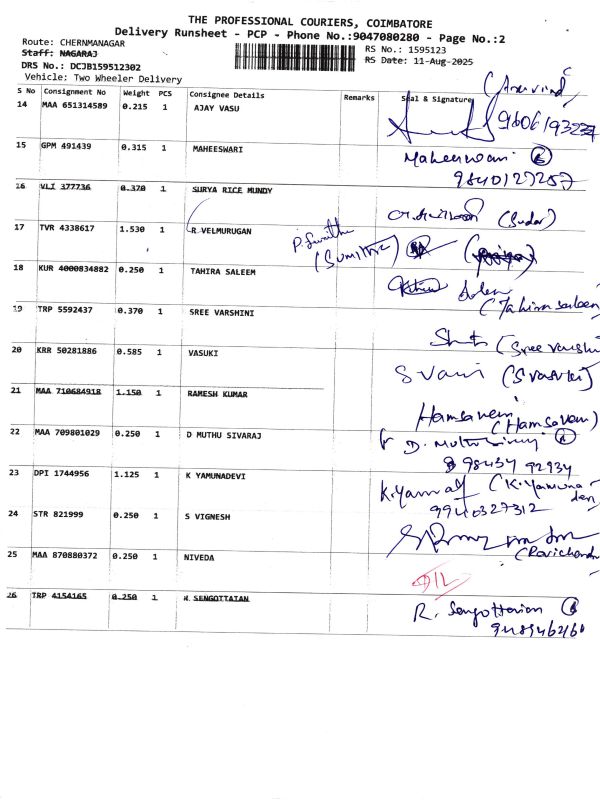 THE PROFESSIONAL COURIERS, COIMBATORE
Delivery Runsheet - PCP - Phone No.:9047080280 - Page No.:2
Route: CHERNMANAGAR
RS No.: 1595123
Staff: NAGARAJ
RS Date: 11-Aug-2025
DRS No.: DCJB159512302
Vehicle: Two Wheeler Delivery
S No Consignment No Weight PCS Consignee Details Remarks Seal & Signature
14 MAA 651314589 0.215 1 AJAY VASU
15 GPM 491439 0.315 1 MAHEESWARI Maheeswari
9840127257
16 VLI 377736 0.370 1 SURYA RICE MUNDY
17 TVR 4338617 1.530 1 R VELMURUGAN (Sumithra)
18 KUR 4000834882 0.250 1 TAHIRA SALEEM
(Tahira Saleem)
19 TRP 5592437 0.370 1 SREE VARSHINI
(Sree varshi
20 KRR 50281886 0.585 1 VASUKI
21 MAA 710684918 1.150 1 RAMESH KUMAR
Hamsaveni (Hamsaveni)
22 MAA 709801029 0.250 1 D MUTHU SIVARAJ
98434 92934
23 DPI 1744956 1.125 1 K YAMUNADEVI
K.Yamuna (K.Yamuna
devi)
9940327312
24 STR 821999 0.250 1 S VIGNESH
(Ravichandra
25 MAA 870880372 0.250 1 NIVEDA
26 TRP 4154165 0.250 1 R. SENGOTTAIAN
R. Sengottaian